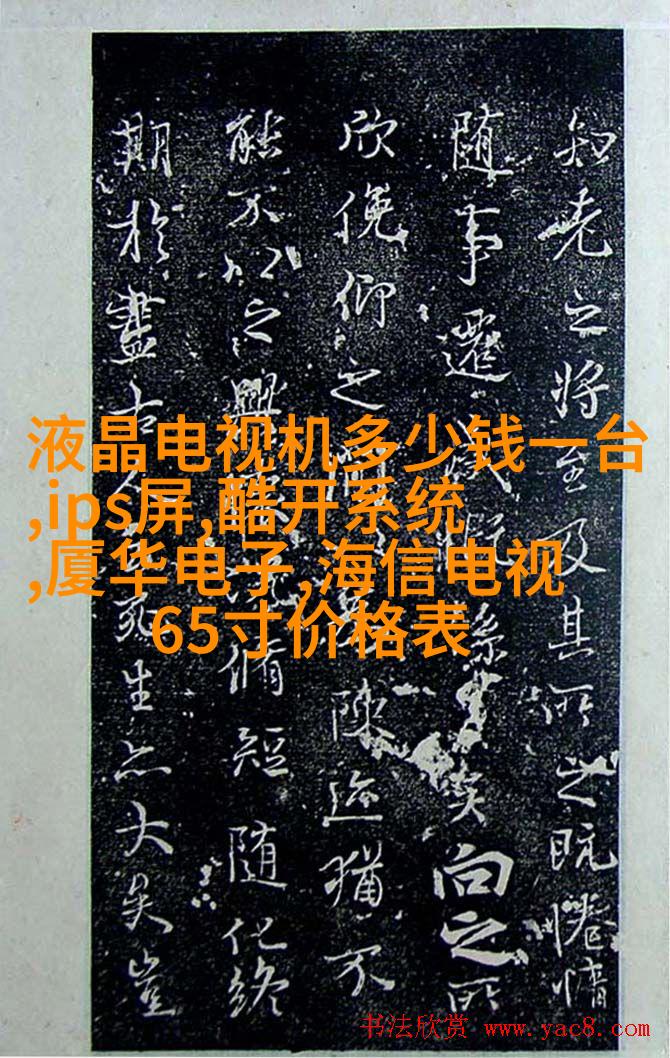 知老之將至及其所之既惓情
随事遷感慨係之矣向之所
欣俛仰之間陳迹猶不
能不以之興懷脩短随化終
期於盡古人死生亦大矣豈
液晶电视机多少钱一台
,ips屏,酷开系统
,厦华电子,海信电视
65寸价格表
书法欣赏 www.yac8.com